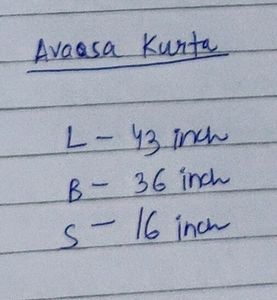 Avaasa Kurta
L - 43 inch
B - 36 inch
S - 16 inch